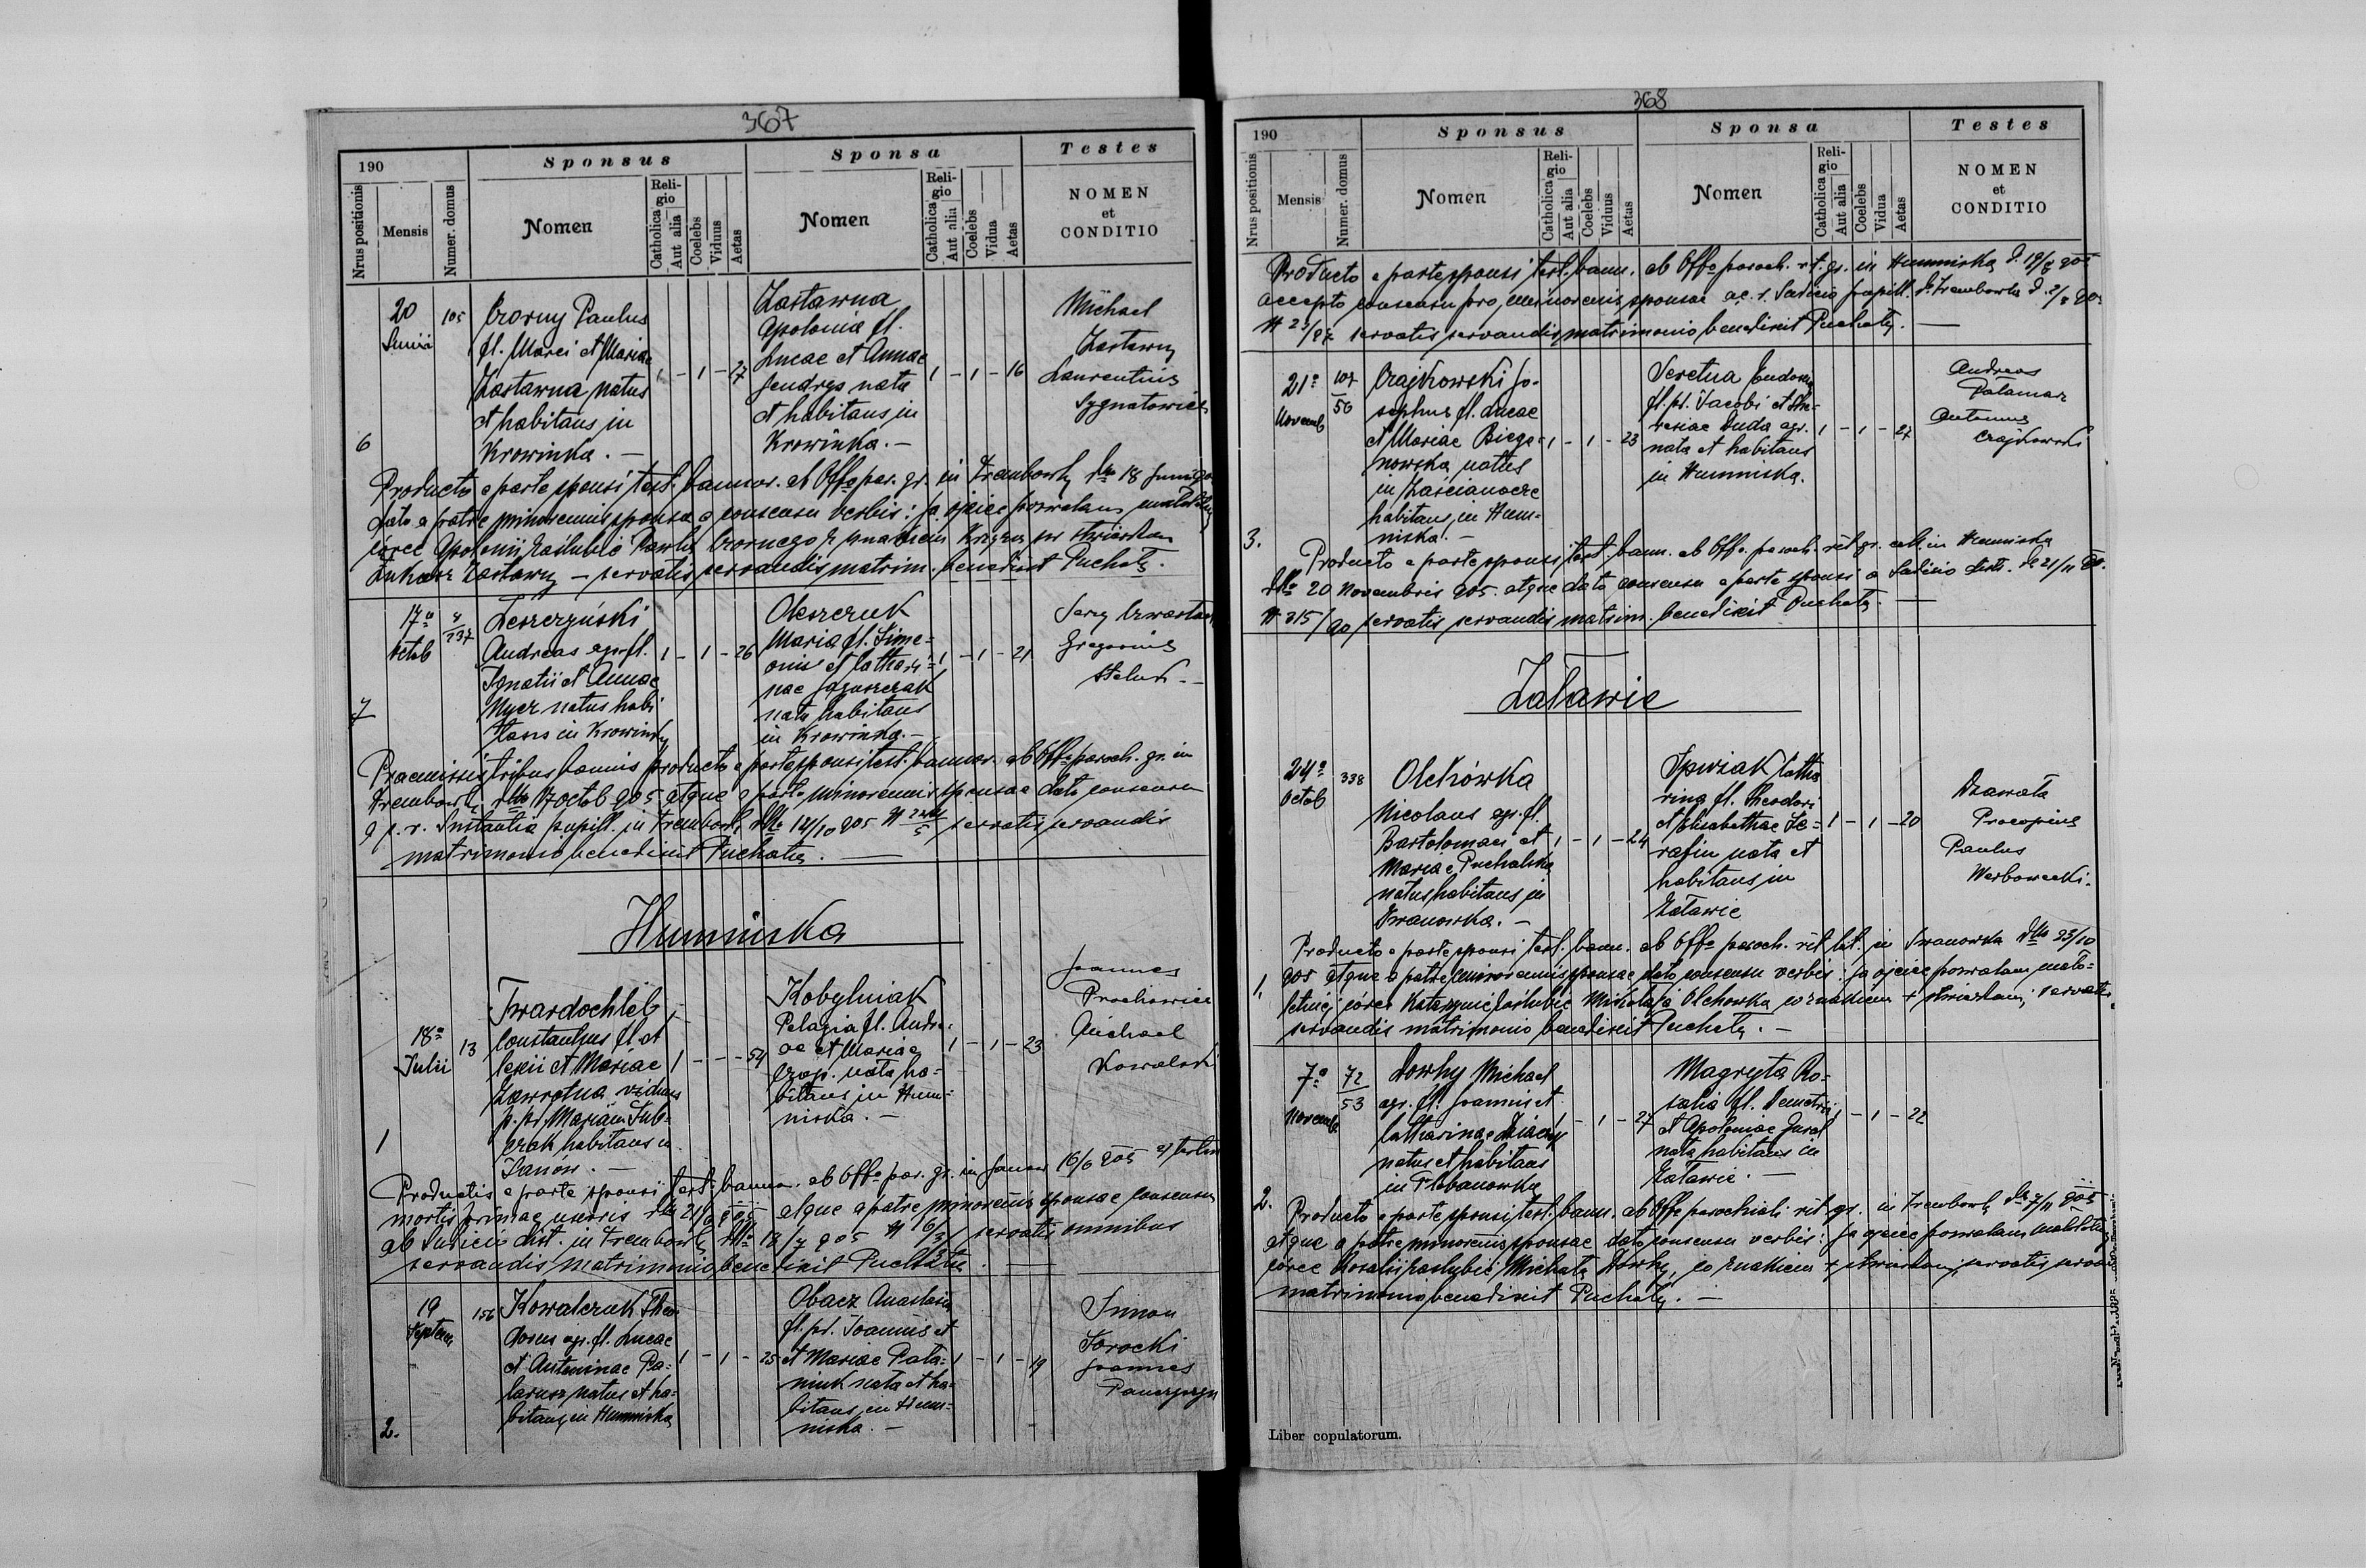 367
190
Sponsus
Sponsa
Testes
Nrus positionis
Mensis
Numer. domus
Nomen
Religio
Catholica
Aut alia
Coelebs
Viduus
Aetas
Nomen
Religio
Catholica
Aut alia
Coelebs
Vidua
Aetas
NOMEN
et
CONDITIO
6
20
Junii
105
Czorny Paulus
fl. Marci et Mariae
Zastawna natus
et habitans in
Krowinka. —
1 - 1 - 27
Zastawna
Apolonia fl.
Lucae et Annae
Jendrys nata
et habitans in
Krowinka. —
1 - 1 - 16
Michael
Zastawny
Laurentius
Sygnatowicz
Producto e parte sponsi test. bannor. ab Offo par. gr. in Trembowla dto 18 Junii 905
dato a patre minorennis sponsae consensu verbis: ja ojciec pozwalam małoletniej
córce Apolonii zaślubić Pawła Czornego znakiem krzyża św. stwierdzam
Łukasz Zastawny — servatis servandis matrim. benedixit Puchały.
7
17a
Octob
8
137
Leszczyński
Andreas agr. fl.
Ignatii et Annae
Mycz natus habi
tans in Krowinka
1 - 1 - 26
Oleszczuk
Maria fl. Sime=
onis et Cathari=
nae Jaguszczak
nata habitans
in Krowinka. —
1 - 1 - 21
Gregorius
Praemissis tribus bannis producto e parte sponsi test. bannor. ab Offo paroch. gr. in
Trembowla dto 17 octob 905 atque e parte minorennis sponsae dato consensu
a p. r. Instantia pupill. in Trembowla dto 14/10 905 servatis servandis
matrimonio benedixit Puchały. —
Humniska
1
18a
Julii
13
Twardochleb
Constantinus fl. A
lexii et Mariae
Zawrotna viduus
p. pd. Mariam Sub=
czak habitans in
Janów. —
1 - - - 54
Kobylniak
Pelagia fl. Andre
ae et Mariae
Czop. nata ha=
bitans in Hum=
niska. —
1 - 1 - 23
Joannes
Prochowicz
Michael
Kowalski
Productis e parte sponsi test. bann. ab Offo par. gr. in Janów 16/6 905 et testim
mortis primae uxoris dto 21/6 905 atque a patre minorennis sponsae consensu
ab Judicio dist. in Trembowla dto 13/7 905 servatis omnibus
servandis matrimonio benedixit Puchały. —
2.
19
Septem
156
Kowalczuk Theo
dorus agr. fl. Lucae
et Antoninae Pa=
larusz natus et ha=
bitans in Humniska
1 - 1 - 25
Obacz Anastasia
fl. pd. Joannis et
et Mariae Pata=
niuk nata et ha=
bitans in Hum=
niska. —
1 - 1 - 19
Simon
Sorocki
Joannes
368
190
Sponsus
Sponsa
Testes
Nrus positionis
Mensis
Numer. domus
Nomen
Religio
Catholica
Aut alia
Coelebs
Viduus
Aetas
Nomen
Religio
Catholica
Aut alia
Coelebs
Vidua
Aetas
NOMEN
et
CONDITIO
Producto e parte sponsi test. bann. ab Offo paroch. rit. gr. in Humniska d. 19/9 905
accepto consensu pro minorennis sponsae a c. r. Judicio pupill. d. Trembowla
servatis servandis matrimonio benedixit Puchały. —
3.
21a
Novemb
107
56
Czajkowski Jo-
sephus fl. Lucae
et Mariae Biega=
nowska natus
in Zaścianocze
habitans in Hum=
niska. —
1 - 1 - 23
Seretna Eudoxia
fl. pd. Jacobi et The=
resiae Duda agr.
nata et habitans
in Humniska.
1 - 1 - 27
Andreas
Palamar
Antonius
Czajkowski
Producto e parte sponsi test. bann. ab Offo paroch. rit gr. cath. in Humniska
dto 20 Novembris 905. atque dato consensu e parte sponsi a Judicio distr. de 21/11 905.
N 315/90 servatis servandis matrim. benedixit Puchały. —
Załawie
1.
24a
Octob
338
Olchówka
Nicolaus agr. fl.
Bartolomaei et
Mariae Puchalska
natus habitans in
Iwanowka. —
1 - 1 - 24
Spiwiak Catha
rina fl. Theodori
et Elisabethae Se=
rafin nata et
habitans in
Załawie
1 - 1 - 20
Dzawała
Procopius
Paulus
Werbowecki.
Producto e parte sponsi test. bann. ab Offo paroch. rit. lat. in Iwanowka dto 23/10
905 atque a patre minorennis sponsae dato consensu verbis: ja ojciec pozwalam mało=
letniej córce Katarzynie zaślubić Mikołaja Olchowka co znakiem + stwierdzam, servatis
servandis matrimonio benedixit Puchały. —
2.
7a
Novemb
72
53
Dowhy Michael
agr. fl. Joannis et
Catharinae Dziaczy
natus et habitans
in Plebanowka
1 - 1 - 27
Magryta Ro=
salia fl. Demetrii
et Apoloniae Gural
nata habitans in
Załawie. —
1 - 1 - 22
Producto e parte sponsi test. bann. ab Offo parochiali rit gr. in Trembowla de 7/11 905
atque a patre minorennis sponsae dato consensu verbis: Ja ojciec pozwalam małoletniej
córce Rosalii zaślubić Michała Dowhy, co znakiem + stwierdzam, servatis servan
matrimonio benedixit Puchały. —
Liber copulatorum.